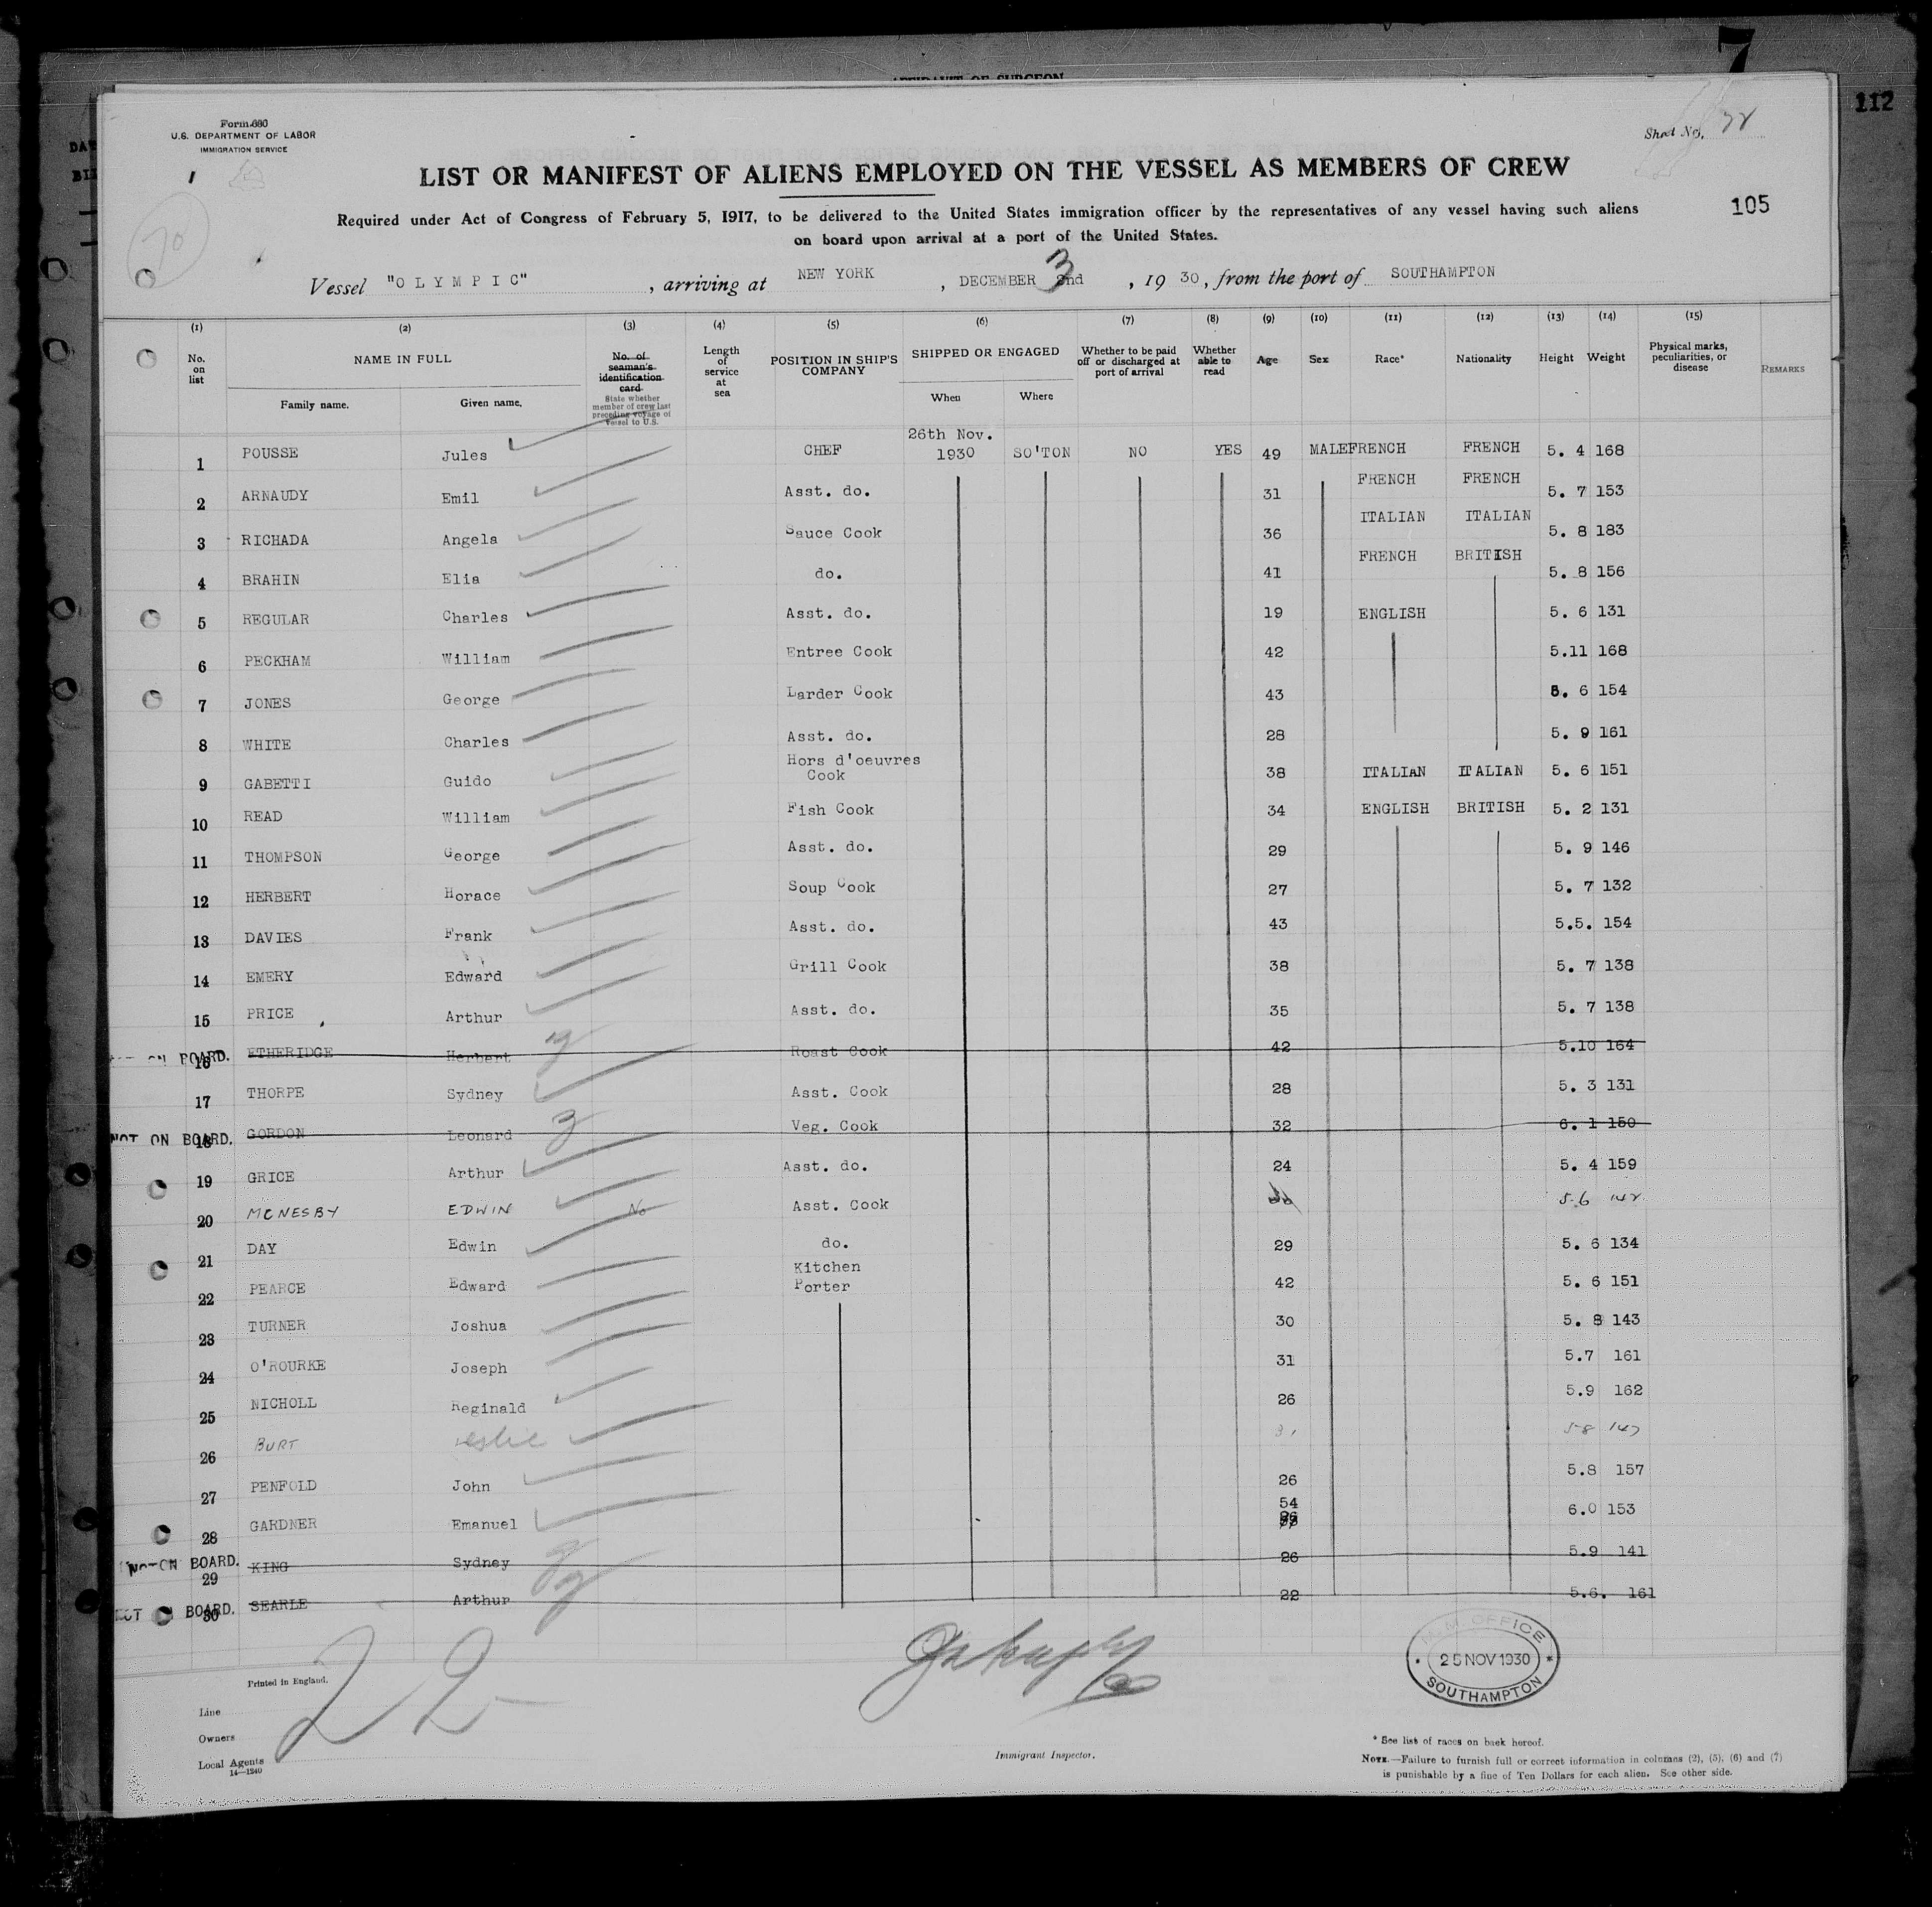 AFFIDAVIT OF SURGEON
7
112
Form 680
U.S. DEPARTMENT OF LABOR
IMMIGRATION SERVICE
Sheet No.
LIST OR MANIFEST OF ALIENS EMPLOYED ON THE VESSEL AS MEMBERS OF CREW
105
Required under Act of Congress of February 5, 1917, to be delivered to the United States immigration officer by the representatives of any vessel having such aliens
on board upon arrival at a port of the United States.
70
Vessel "OLYMPIC", arriving at NEW YORK, DECEMBER 3 2nd, 1930, from the port of SOUTHAMPTON
(1) (2) (3) (4) (5) (6) (7) (8) (9) (10) (11) (12) (13) (14) (15)
No. on list NAME IN FULL Family name. Given name. No. of seaman's identification card State whether member of crew last preceding voyage of vessel to U.S. Length of service at sea POSITION IN SHIP'S COMPANY SHIPPED OR ENGAGED When Where Whether to be paid off or discharged at port of arrival Whether able to read Age Sex Race* Nationality Height Weight Physical marks, peculiarities, or disease REMARKS
1 POUSSE Jules CHEF 26th Nov. 1930 SO'TON NO YES 49 MALE FRENCH FRENCH 5. 4 168
2 ARNAUDY Emil Asst. do. 31 FRENCH FRENCH 5. 7 153
3 RICHADA Angela Sauce Cook 36 ITALIAN ITALIAN 5. 8 183
4 BRAHIN Elia do. 41 FRENCH BRITISH 5. 8 156
5 REGULAR Charles Asst. do. 19 ENGLISH 5. 6 131
6 PECKHAM William Entree Cook 42 5.11 168
7 JONES George Larder Cook 43 5. 6 154
8 WHITE Charles Asst. do. 28 5. 9 161
9 GABETTI Guido Hors d'oeuvres Cook 38 ITALIAN ITALIAN 5. 6 151
10 READ William Fish Cook 34 ENGLISH BRITISH 5. 2 131
11 THOMPSON George Asst. do. 29 5. 9 146
12 HERBERT Horace Soup Cook 27 5. 7 132
13 DAVIES Frank Asst. do. 43 5.5. 154
14 EMERY Edward Grill Cook 38 5. 7 138
15 PRICE Arthur Asst. do. 35 5. 7 138
ON BOARD. 16 ETHERIDGE Herbert Roast Cook 42 5.10 164
17 THORPE Sydney Asst. Cook 28 5. 3 131
NOT ON BOARD. 18 GORDON Leonard Veg. Cook 32 6. 1 150
19 GRICE Arthur Asst. do. 24 5. 4 159
20 MCNESBY EDWIN No Asst. Cook 5.6
21 DAY Edwin do. 29 5. 6 134
22 PEARCE Edward Kitchen Porter 42 5. 6 151
23 TURNER Joshua 30 5. 8 143
24 O'ROURKE Joseph 31 5.7 161
25 NICHOLL Reginald 26 5.9 162
26 BURT Leslie 31 5 8 147
27 PENFOLD John 26 5.8 157
28 GARDNER Emanuel 54 6.0 153
NOT ON BOARD. 29 KING Sydney 26 5.9 141
NOT BOARD. 30 SEARLE Arthur 22 5.6. 161
22
Printed in England.
Line
Owners
Local Agents
14—1240
Immigrant Inspector.
M.M. OFFICE
25 NOV 1930
SOUTHAMPTON
* See list of races on back hereof.
NOTE.—Failure to furnish full or correct information in columns (2), (5), (6) and (7)
is punishable by a fine of Ten Dollars for each alien. See other side.